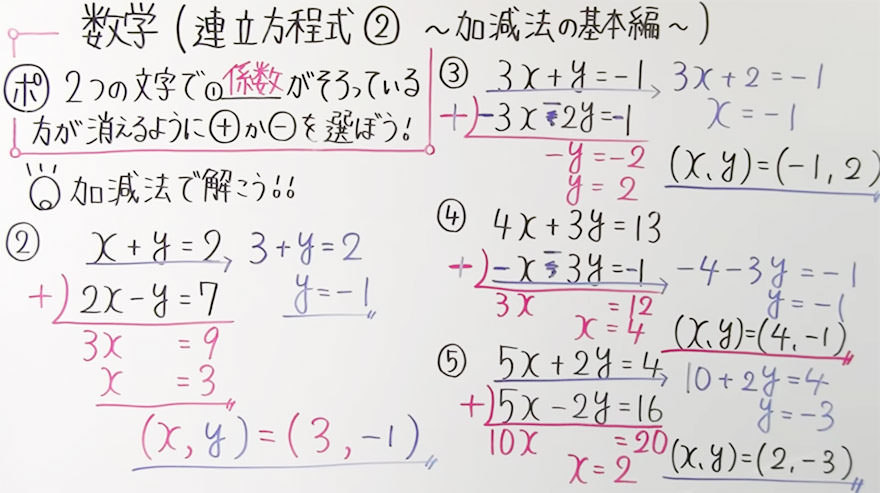 数学(連立方程式② ～加減法の基本編～)
ポ 2つの文字で①係数がそろっている
方が消えるように⊕か⊖を選ぼう!
加減法で解こう!!
② x+y=2 3+y=2
+)2x-y=7 y=-1
3x =9
x =3
(x,y)=(3,-1)
③ 3x+y=-1 3x+2=-1
+)-3x-2y=-1 x=-1
-y=-2
y=2
(x,y)=(-1,2)
④ 4x+3y=13
+)-x-3y=-1 -4-3y=-1
3x =12 y=-1
x=4
(x,y)=(4,-1)
⑤ 5x+2y=4 10+2y=4
+)5x-2y=16 y=-3
10x =20
x=2
(x,y)=(2,-3)